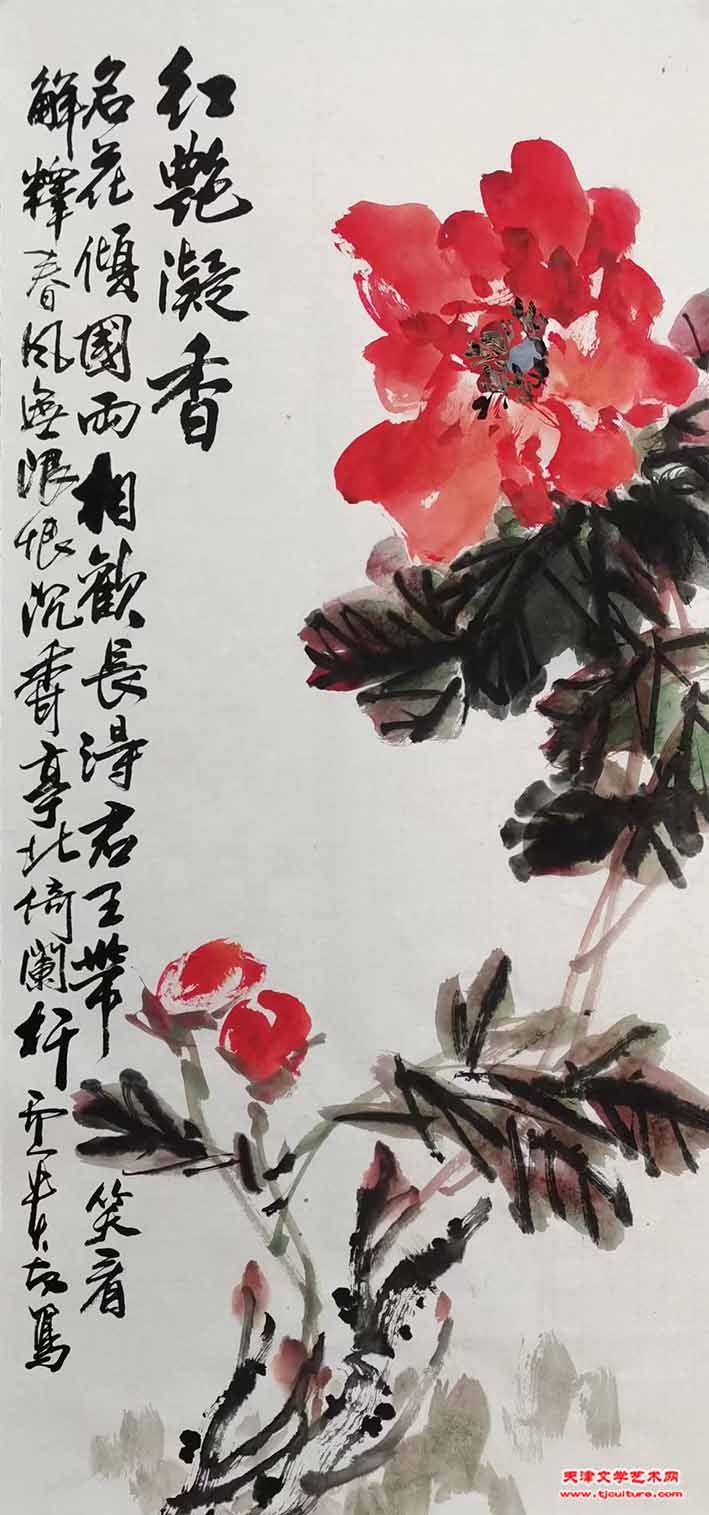 红艳凝香
名花傾國两相歡長得君王帶笑看
解釋春风無限恨沉香亭北倚闌杆 寫
天津文学艺术网
www.tjculture.com